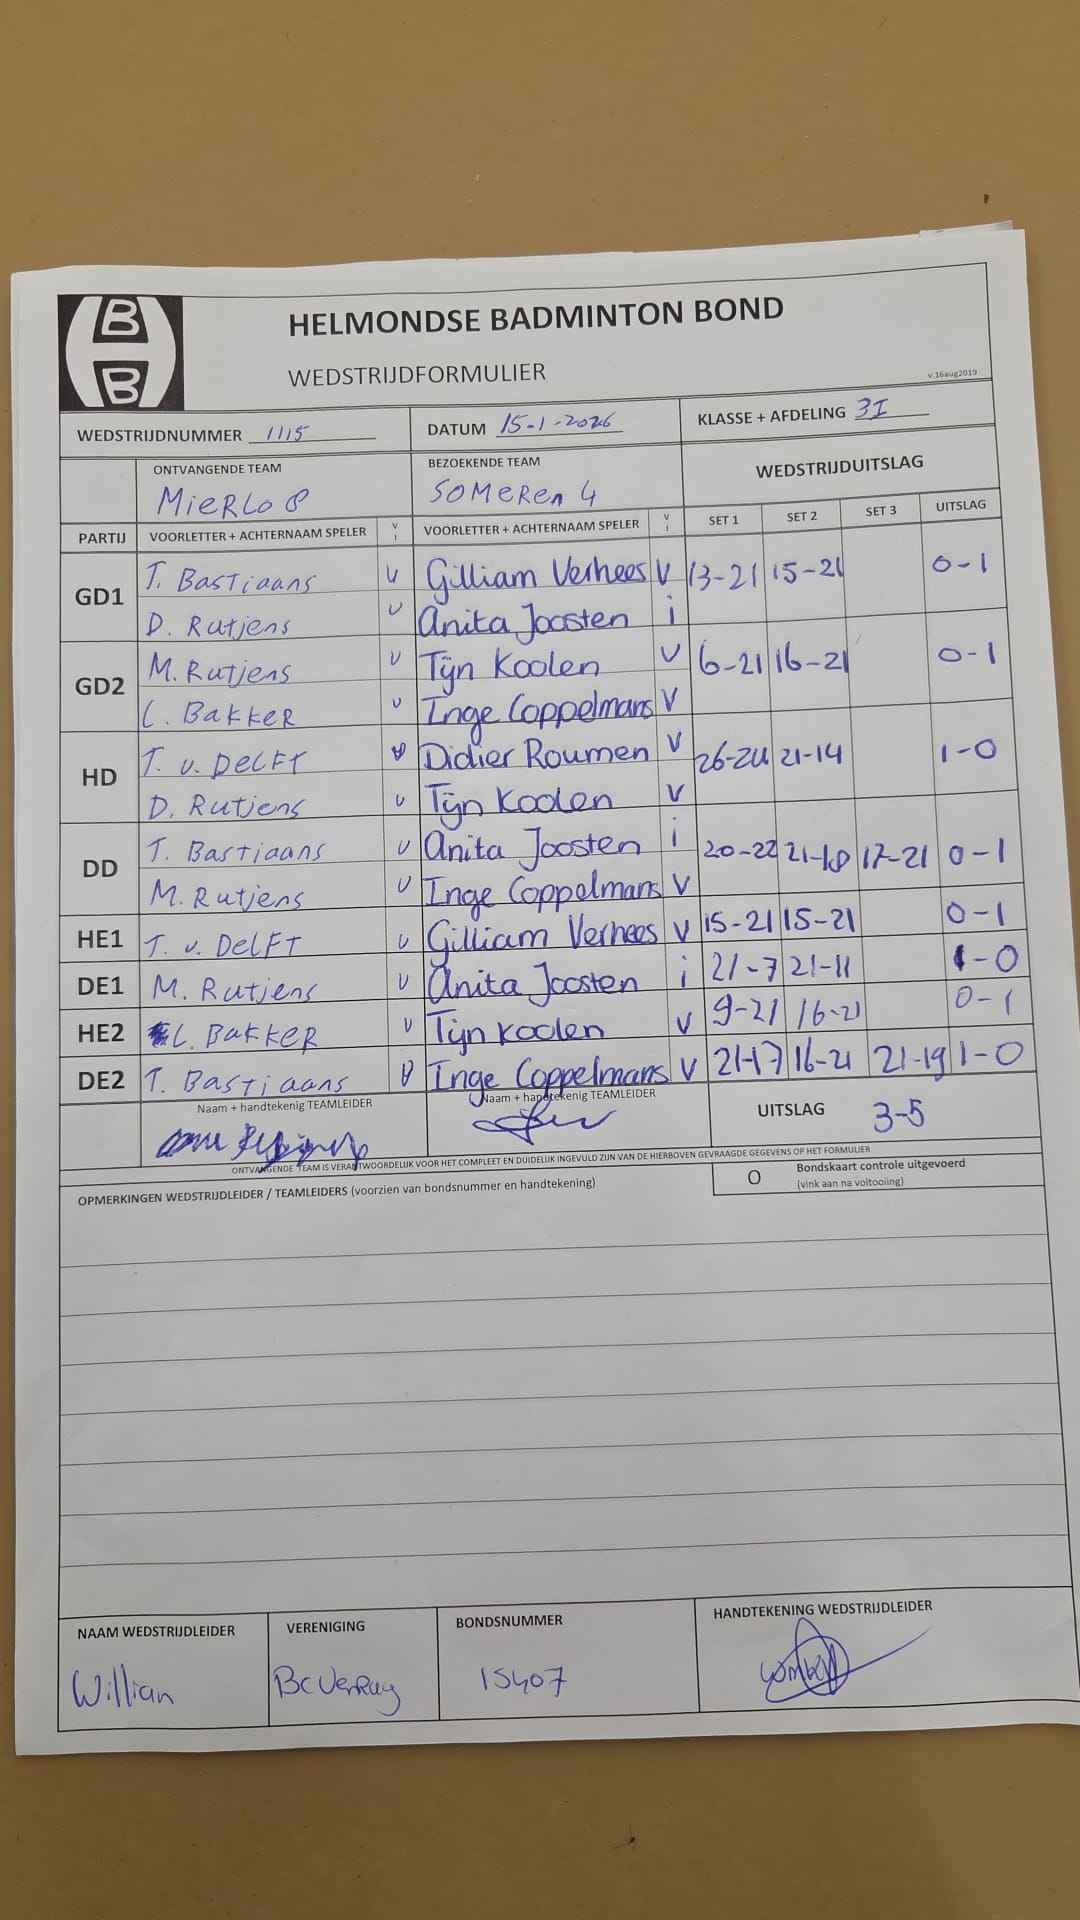 B
B
HELMONDSE BADMINTON BOND
WEDSTRIJDFORMULIER
v.16aug2019
WEDSTRIJDNUMMER 1115 DATUM 15-1-2026 KLASSE + AFDELING 3I
ONTVANGENDE TEAM BEZOEKENDE TEAM WEDSTRIJDUITSLAG
MIERLO 8 SOMEREN 4
PARTIJ VOORLETTER + ACHTERNAAM SPELER V I VOORLETTER + ACHTERNAAM SPELER V I SET 1 SET 2 SET 3 UITSLAG
GD1 T. Bastiaans v Gilliam Verhees v 13-21 15-21 0-1
D. Rutjens v Anita Joosten i
GD2 M. Rutjens v Tijn Koolen v 6-21 16-21 0-1
C. Bakker v Inge Coppelmans v
HD T. v. Delft v Didier Roumen v 26-24 21-14 1-0
D. Rutjens v Tijn Koolen v
DD T. Bastiaans v Anita Joosten i 20-22 21-18 17-21 0-1
M. Rutjens v Inge Coppelmans v
HE1 T. v. Delft v Gilliam Verhees v 15-21 15-21 0-1
DE1 M. Rutjens v Anita Joosten i 21-7 21-11 1-0
HE2 C. Bakker v Tijn Koolen v 9-21 16-21 0-1
DE2 T. Bastiaans v Inge Coppelmans v 21-17 16-21 21-19 1-0
Naam + handtekenig TEAMLEIDER Naam + handtekenig TEAMLEIDER UITSLAG 3-5
ONTVANGENDE TEAM IS VERANTWOORDELIJK VOOR HET COMPLEET EN DUIDELIJK INGEVULD ZIJN VAN DE HIERBOVEN GEVRAAGDE GEGEVENS OP HET FORMULIER
OPMERKINGEN WEDSTRIJDLEIDER / TEAMLEIDERS (voorzien van bondsnummer en handtekening) O Bondskaart controle uitgevoerd
(vink aan na voltooiing)
NAAM WEDSTRIJDLEIDER VERENIGING BONDSNUMMER HANDTEKENING WEDSTRIJDLEIDER
Willian BC Venray 15407